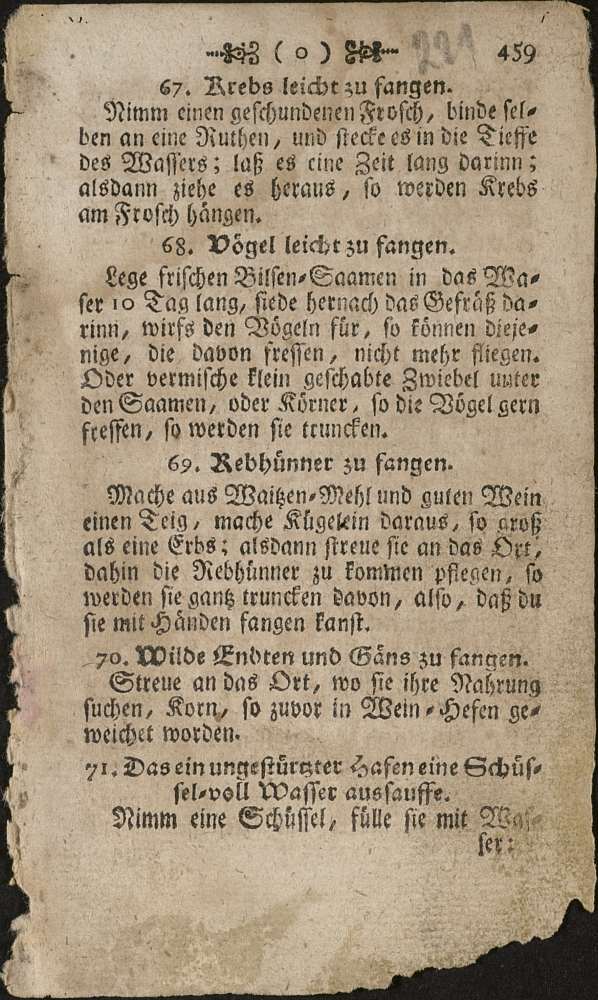 ( o ) 221 459
67. Krebs leicht zu fangen.
Nimm einen geschundenen Frosch, binde sel-
ben an eine Ruthen, und stecke es in die Tieffe
des Wassers; laß es eine Zeit lang darinn;
alsdann ziehe es heraus, so werden Krebs
am Frosch hängen.
68. Vögel leicht zu fangen.
Lege frischen Bilsen-Saamen in das Wa-
ser 10 Tag lang, siede hernach das Gefräß da-
rinn, wirfs den Vögeln für, so können dieje-
nige, die davon fressen, nicht mehr fliegen.
Oder vermische klein geschabte Zwiebel unter
den Saamen, oder Körner, so die Vögel gern
fressen, so werden sie truncken.
69. Rebhünner zu fangen.
Mache aus Waitzen-Mehl und guten Wein
einen Teig, mache Kügelein daraus, so groß
als eine Erbs; alsdann streue sie an das Ort,
dahin die Rebhünner zu kommen pflegen, so
werden sie gantz truncken davon, also, daß du
sie mit Händen fangen kanst.
70. Wilde Endten und Gäns zu fangen.
Streue an das Ort, wo sie ihre Nahrung
suchen, Korn, so zuvor in Wein-Hefen ge-
weichet worden.
71. Das ein ungestürtzter Hafen eine Schüs-
sel-voll Wasser aussauffe.
Nimm eine Schüssel, fülle sie mit Was-
ser: